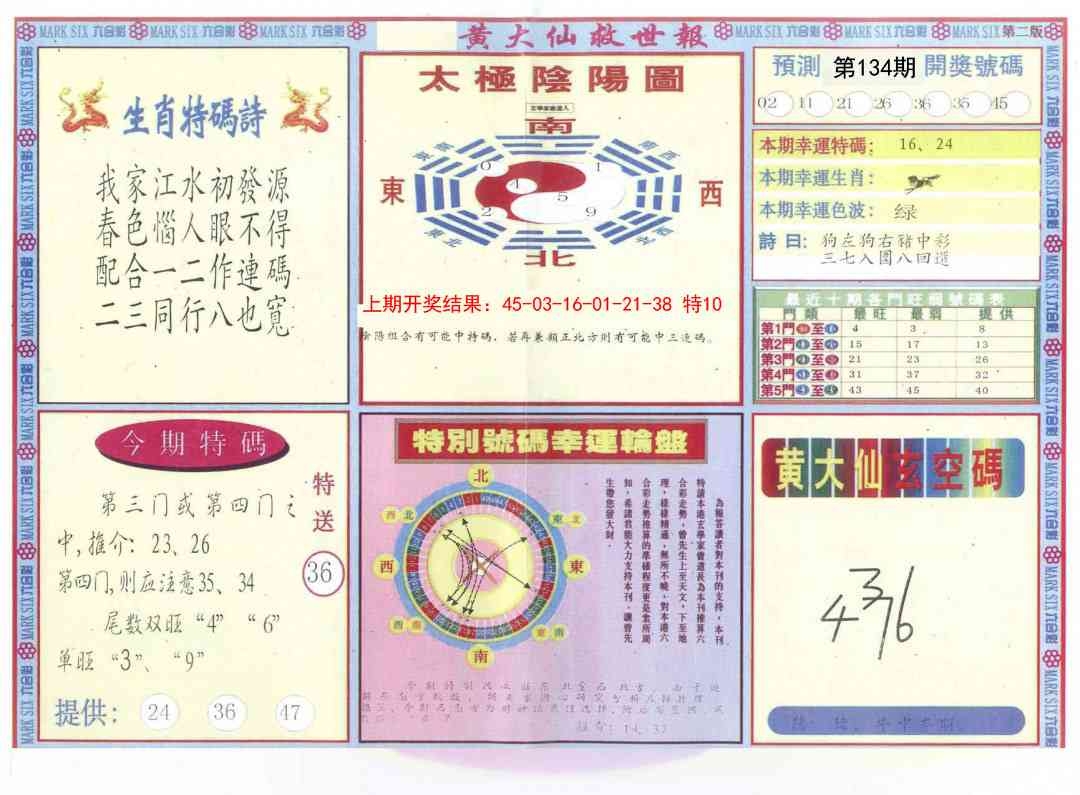 MARK SIX 六合彩 MARK SIX 六合彩 MARK SIX 六合彩
黄大仙救世報
MARK SIX 六合彩 MARK SIX 六合彩 MARK SIX
第二版
生肖特碼詩
我家江水初發源
春色惱人眼不得
配合一二作連碼
二三同行八也寬
太極陰陽圖
南
東南
西南
東
西
0 1
4 5
2 9
東北
西北
北
上期开奖结果：45-03-16-01-21-38 特10
陰陽組合有可能中特碼，若再兼顧正北方則有可能中三连碼。
預測 第134期 開獎號碼
02 11 21 26 36 35 45
本期幸運特碼： 16、24
本期幸運生肖：
本期幸運色波： 绿
詩曰：狗左狗右豬中彩
三七入圍八回選
最近十期各門旺弱號碼表
門類 最旺 最弱 提供
第1門 至 4 3 8
第2門 至 15 17 13
第3門 至 21 23 26
第4門 至 31 37 32
第5門 至 43 45 40
今期特碼
第三门或第四门之
中,推介: 23、26
第四门,则应注意35、34
尾数双旺“4” “6”
单旺“3”、“9”
特送
36
提供: 24 36 47
特別號碼幸運輪盤
北
西北
東北
西
東
西南
東南
南
為報答讀者對本刊的支持，本刊
特請本港玄學家曾道長為本刊推算六
合彩走勢，曾先生上至天文，下至地
理，樣樣精通，無所不曉，對本港六
合彩走勢推算的準確程度更是衆所周
知，希諸君能大力支持本刊，讓曾先
生帶您發大財．
14、37
黄大仙玄空碼
4376